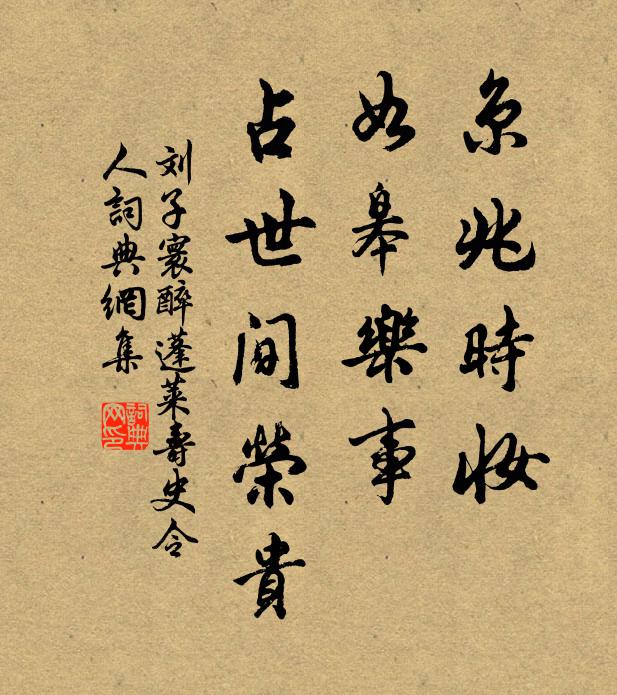 京兆時妝
如皋樂事
占世間榮貴
刘子寰醉蓬萊壽史令
人詞典網集
詞典
网印